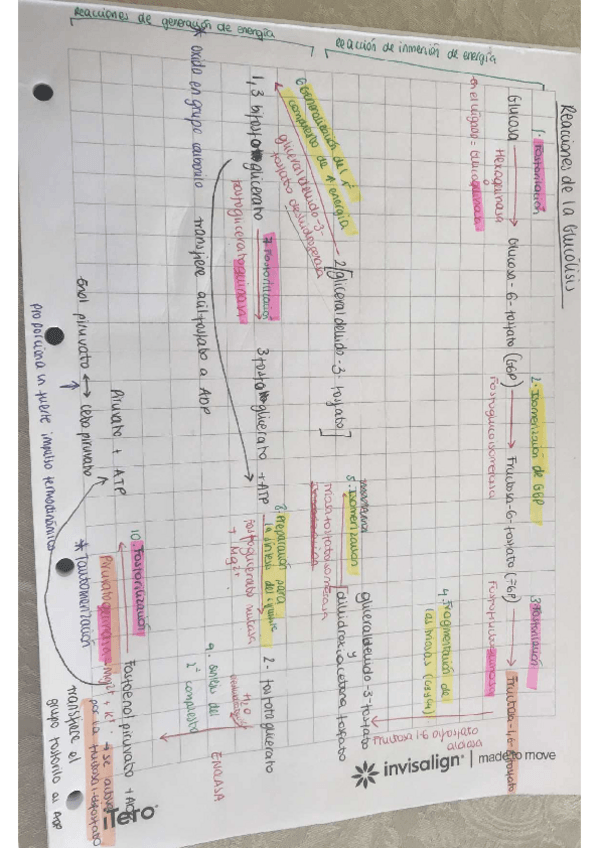 Reacciones de la Glucólisis
Reacción de inversión de energía
Reacciones de generación de energía
1. Fosforilación
Glucosa → Glucosa-6-fosfato (G6P)
Hexoquinasa
en el hígado = Glucoquinasa
2. Isomerización de G6P
→ Fructosa-6-fosfato (F6P)
Fosfoglucoisomerasa
3. Fosforilación
→ Fructosa-1,6-bifosfato
Fructosa 1-6 bifosfato
aldolasa
4. Fragmentación de
las hexosas (C3 y C4)
gliceraldehido-3-fosfato
y
dihidroxiacetona fosfato
5. Isomerización
2[gliceraldehido-3-fosfato]
6. Generalización del 1º
compuesto de ↑ energía
gliceraldehido-3-
fosfato deshidrogenasa
1,3 bifosfoglicerato
7. Fosforilación
fosfogliceratoquinasa
3 fosfoglicerato + ATP
8. Preparación para
la síntesis del siguiente
fosfoglicerato mutasa
+ Mg2+
2-fosfoglicerato
9. síntesis del
2º compuesto
H2O
ENOLASA
* oxida en grupo carbonilo transfiere acilfosfato a ADP
10. Fosforilación
Fosfoenolpiruvato + ADP
Piruvatoquinasa + Mg2+ + K+ → se activa
por la fructosa 1-6 bifosfato
Piruvato + ATP
enol piruvato ↔ ceto piruvato
* Tautomerización
transfiere el
grupo fosforilo al ADP
proporciona un fuerte impulso termodinámico
invisalign | made to move
iTero